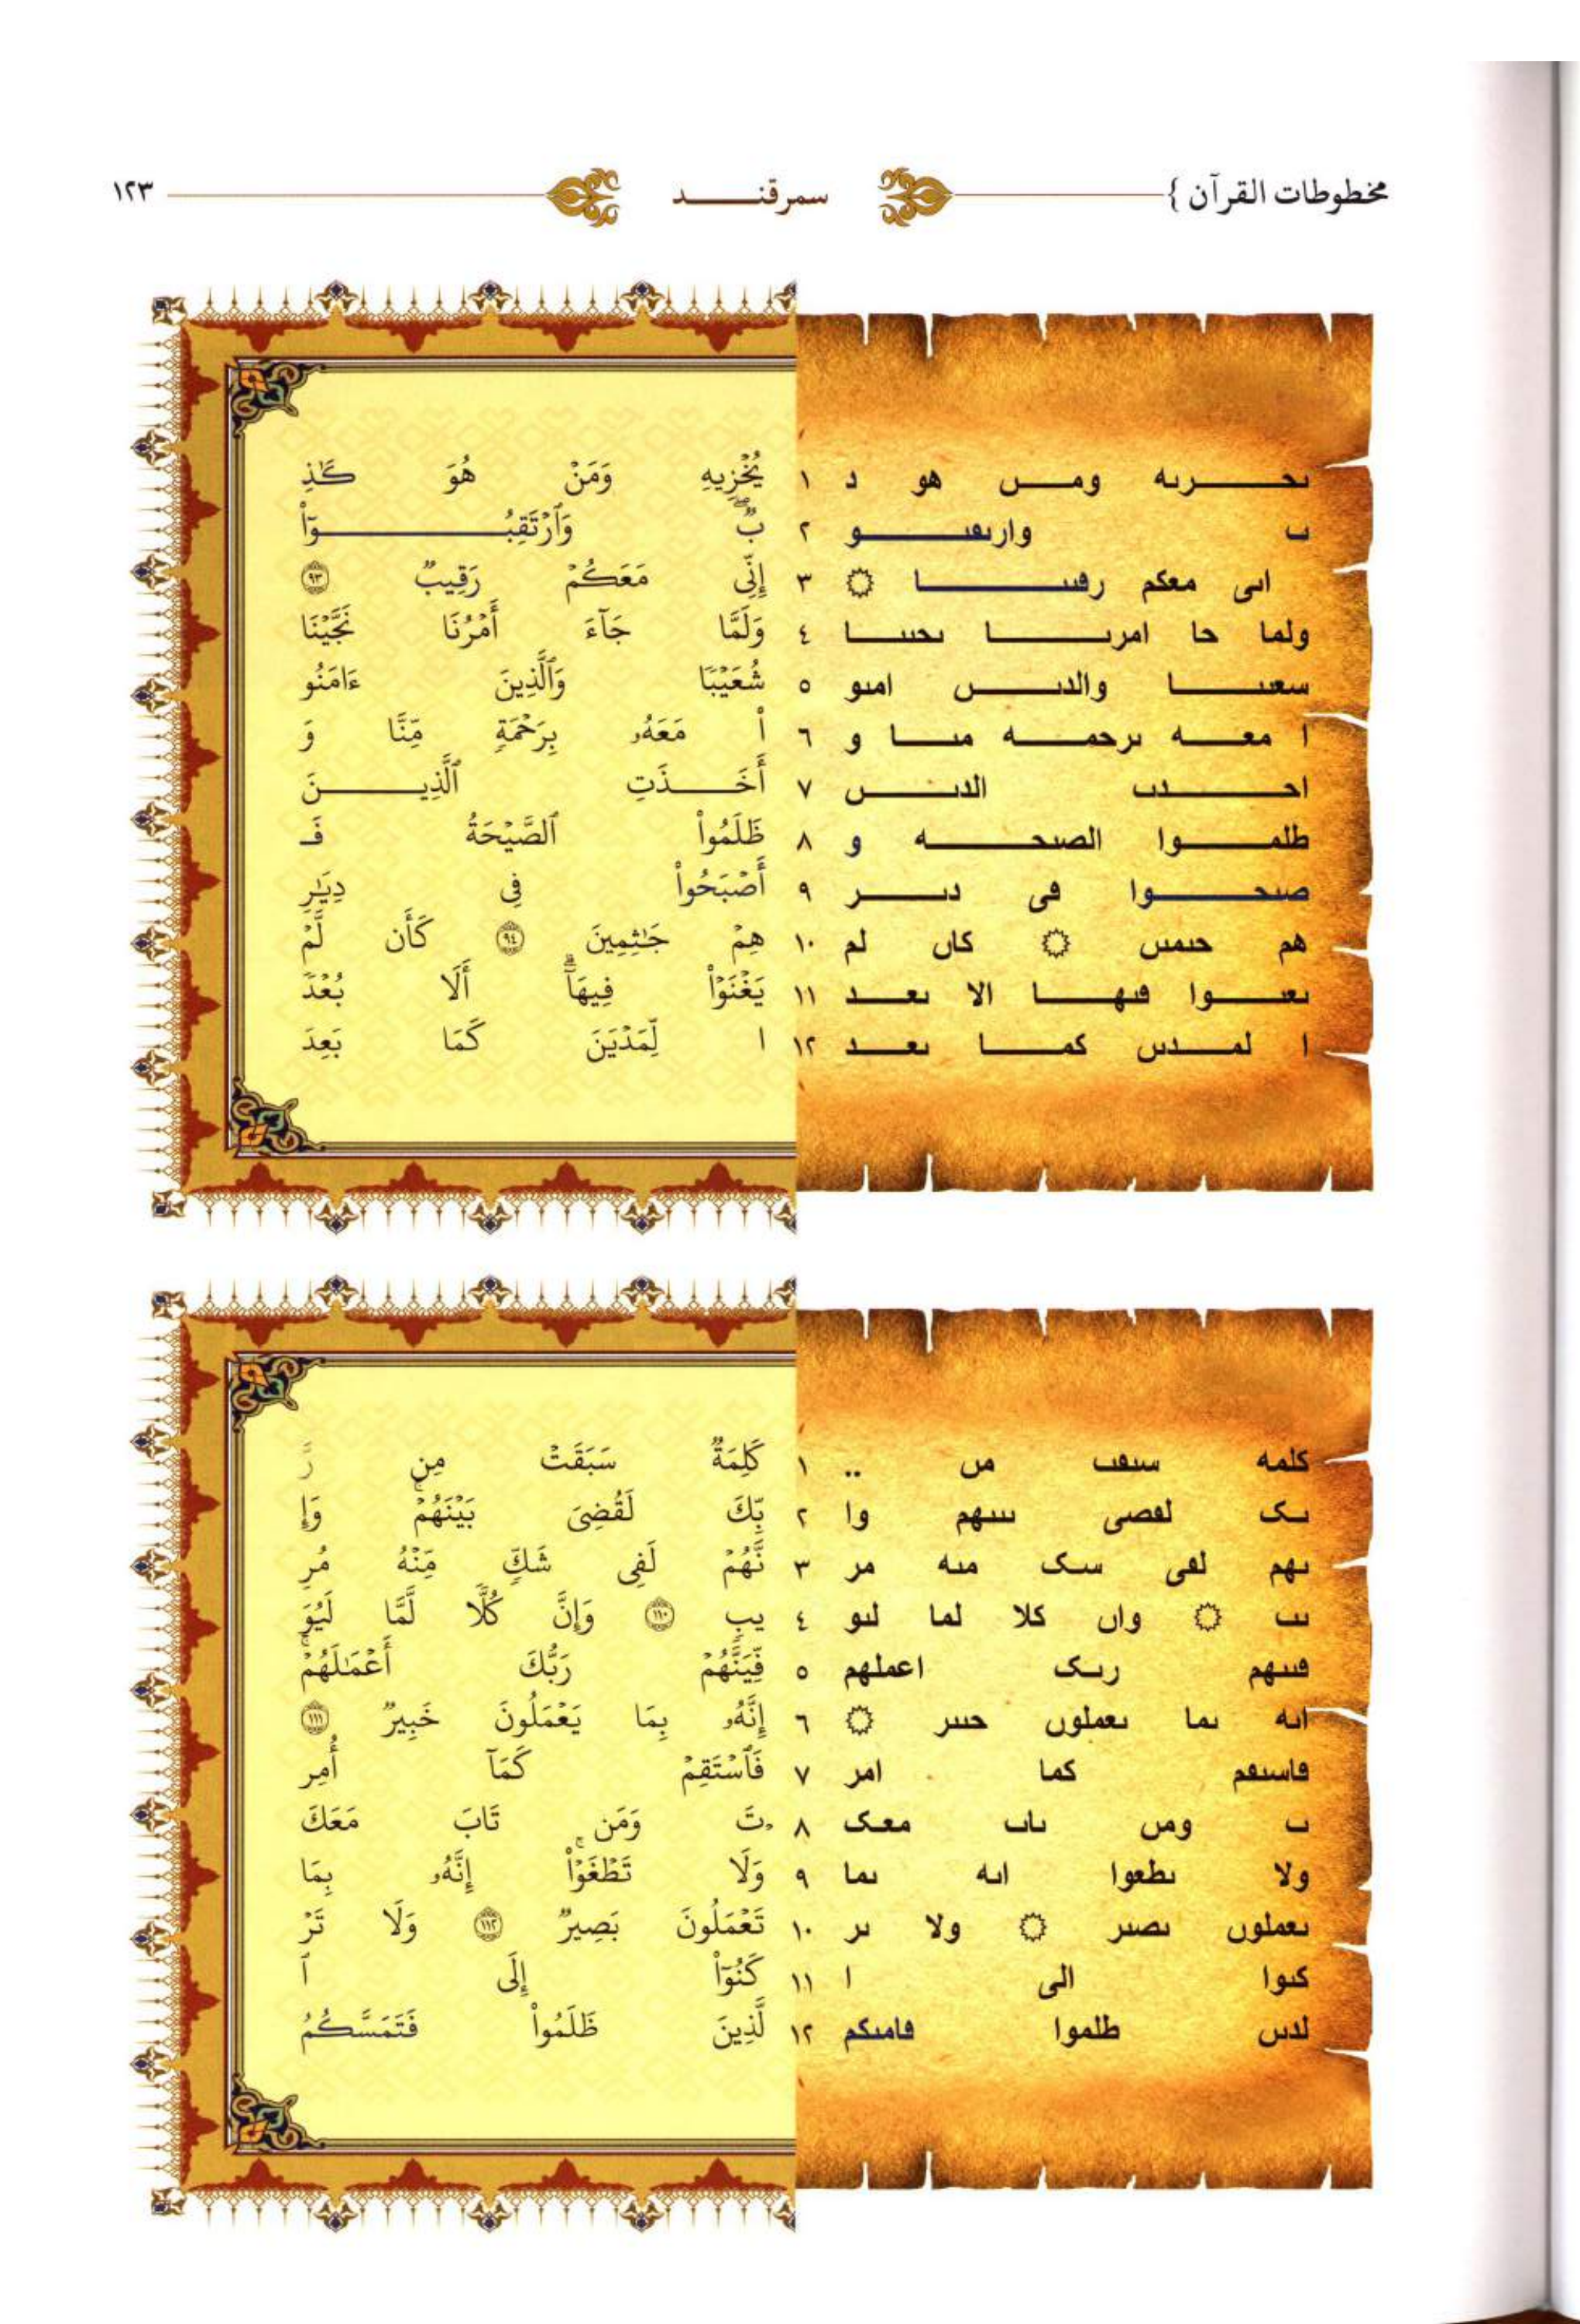 مخطوطات القرآن } سمرقنــــــد ١٢٣
ىحـــــرىه ومــــں هو د ١ يُخْزِيهِ وَمَنْ هُوَ كَٰذِ
ٮ وارىڡٮــــــو ٢ بٌۖ وَٱرْتَقِبُــــــوٓا۟
اىى معكم رڡىٮــــــا ۞ ٣ إِنِّى مَعَكُمْ رَقِيبٌ ٩٣
ولما حا امرىــــا ىحىىــــا ٤ وَلَمَّا جَآءَ أَمْرُنَا نَجَّيْنَا
سعىٮــــا والدىــــں امىو ٥ شُعَيْبًا وَٱلَّذِينَ ءَامَنُو
ا معــــه ىرحمــــه مىــــا و ٦ ا۟ مَعَهُۥ بِرَحْمَةٍ مِّنَّا وَ
احــــدٮ الدىــــں ٧ أَخَــــذَتِ ٱلَّذِيــــنَ
طلمــــوا الصىحــــه و ٨ ظَلَمُوا۟ ٱلصَّيْحَةُ فَـ
صىحــــوا ڡى دىــــر ٩ أَصْبَحُوا۟ فِى دِيَٰرِ
هم حىمىں ۞ كاں لم ١٠ هِمْ جَٰثِمِينَ ٩٤ كَأَن لَّمْ
ىعىــــوا ڡىهــــا الا ىعــــد ١١ يَغْنَوْا۟ فِيهَآۗ أَلَا بُعْدً
ا لمــــدىں كمــــا ىعــــد ١٢ ا لِّمَدْيَنَ كَمَا بَعِدَ
كلمه سىڡٮ مں .. ١ كَلِمَةٌ سَبَقَتْ مِن رَّ
ىک لڡصى ىىىهم وا ٢ بِّكَ لَقُضِىَ بَيْنَهُمْۚ وَإِ
ىهم لڡى سک مىه مر ٣ نَّهُمْ لَفِى شَكٍّ مِّنْهُ مُرِ
ىٮ ۞ واں كلا لما لىو ٤ يبٍ ١١٠ وَإِنَّ كُلًّا لَّمَّا لَيُوَ
ڡىىهم رىک اعملهم ٥ فِّيَنَّهُمْ رَبُّكَ أَعْمَٰلَهُمْۚ
اىه ىما ىعملوں حىىر ۞ ٦ إِنَّهُۥ بِمَا يَعْمَلُونَ خَبِيرٌ ١١١
ڡاسىڡم كما امر ٧ فَٱسْتَقِمْ كَمَآ أُمِر
ٮ ومں ىاٮ معک ٨ تَ وَمَن تَابَ مَعَكَ
ولا ىطعوا اىه ىما ٩ وَلَا تَطْغَوْا۟ۚ إِنَّهُۥ بِمَا
ىعملوں ىصىر ۞ ولا ىر ١٠ تَعْمَلُونَ بَصِيرٌ ١١٢ وَلَا تَرْ
كىوا الى ا ١١ كَنُوٓا۟ إِلَى ٱ
لدىں طلموا ڡامىكم ١٢ لَّذِينَ ظَلَمُوا۟ فَتَمَسَّكُمُ